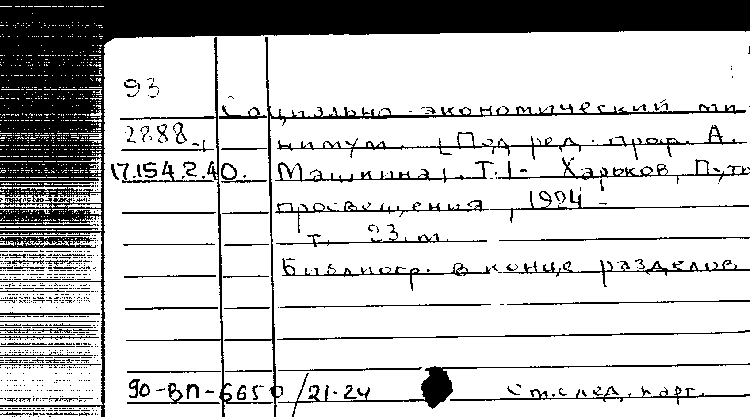 93
Социально-экономический ми-
2888-1 нимум. [Под ред. проф. А.
17.154.2.40. Машкина]. Т.1- Харьков, Путь
просвещения, 1924-
т. 23 см.
Библиогр. в конце разделов
90-ВП-6650/21-24 См. след. карт.